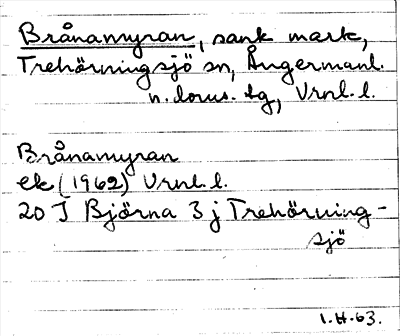 Brånamyran, sank mark,
Trehörningsjö sn, Ångermanl.
n. doms. tg, Vrnl. l.
Brånamyran
ek (1962) Vrnl. l.
20 J Björna 3 j Trehörning-
sjö
1.H.63.